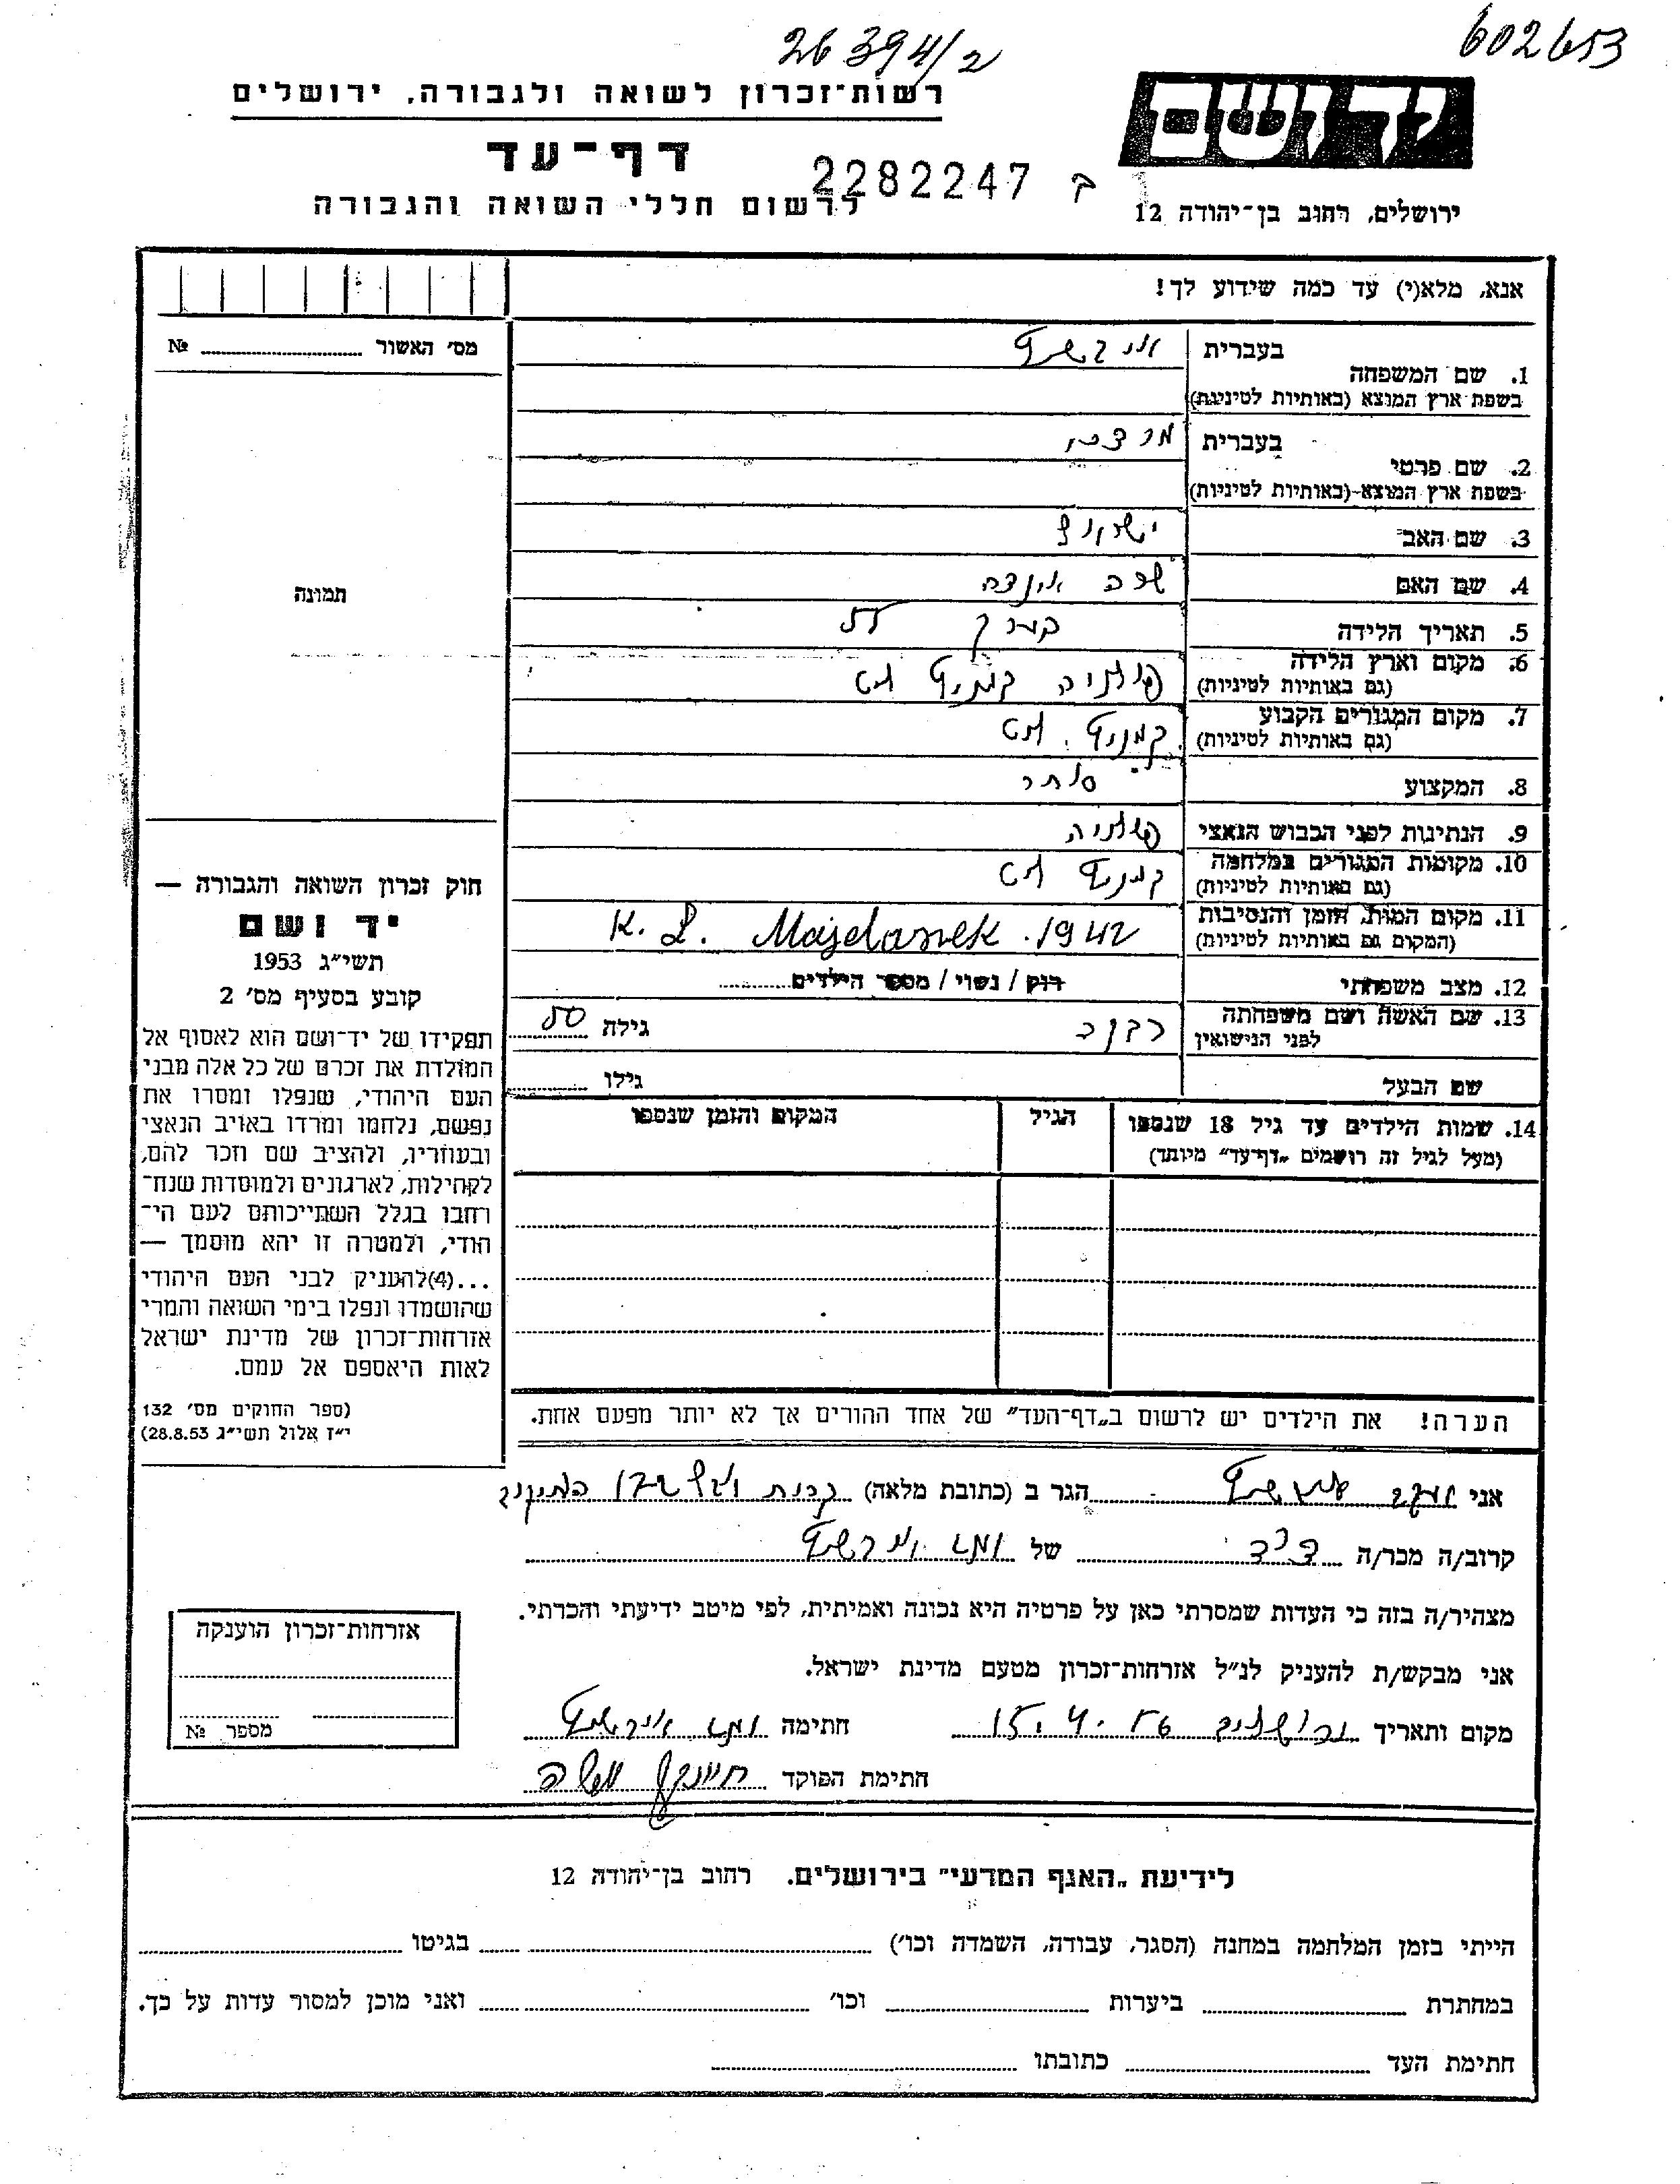 26394/2
602653
יד ושם
רשות־זכרון לשואה ולגבורה, ירושלים
דף־עד
2282247 ב
לרשום חללי השואה והגבורה
ירושלים, רחוב בן־יהודה 12
אנא, מלא(י) עד כמה שידוע לך!
מס׳ האשור № 
בעברית
1. שם המשפחה
בשפת ארץ המוצא (באותיות לטיניות)
בעברית מרדכי
2. שם פרטי
בשפת ארץ המוצא (באותיות לטיניות)
3. שם האב ישראל
4. שם האם שרה
תמונה
5. תאריך הלידה
6. מקום וארץ הלידה פולניה
(גם באותיות לטיניות)
7. מקום המגורים הקבוע
(גם באותיות לטיניות)
8. המקצוע סוחר
9. הנתינות לפני הכבוש הנאצי פולניה
10. מקומות המגורים במלחמה
(גם באותיות לטיניות)
11. מקום המות, הזמן והנסיבות K. L. Majdanek. 1942
(המקום גם באותיות לטיניות)
12. מצב משפחתי רוק / נשוי / מספר הילדים
13. שם האשה ושם משפחתה רבקה גילה 50
לפני הנישואין
שם הבעל גילו
14. שמות הילדים עד גיל 18 שנספו הגיל המקום והזמן שנספו
(מעל לגיל זה רושמים „דף־עד” מיוחד)
חוק זכרון השואה והגבורה —
יד ושם
תשי״ג 1953
קובע בסעיף מס׳ 2
תפקידו של יד־ושם הוא לאסוף אל
המולדת את זכרם של כל אלה מבני
העם היהודי, שנפלו ומסרו את
נפשם, נלחמו ומרדו באויב הנאצי
ובעוזריו, ולהציב שם וזכר להם,
לקהילות, לארגונים ולמוסדות שנח־
רחבו בגלל השתייכותם לעם הי־
הודי, ולמטרה זו יהא מוסמך —
...(4)להעניק לבני העם היהודי
שהושמדו ונפלו בימי השואה והמרי
אזרחות־זכרון של מדינת ישראל
לאות היאספם אל עמם.
(ספר החוקים מס׳ 132
י״ז אלול תשי״ג 28.8.53)
הערה! את הילדים יש לרשום ב„דף־העד” של אחד ההורים אך לא יותר מפעם אחת.
אני הגר ב (כתובת מלאה)
קרוב/ה מכר/ה של
מצהיר/ה בזה כי העדות שמסרתי כאן על פרטיה היא נכונה ואמיתית, לפי מיטב ידיעתי והכרתי.
אני מבקש/ת להעניק לנ״ל אזרחות־זכרון מטעם מדינת ישראל.
מקום ותאריך 15. 4. 56 חתימה
חתימת הפוקד
אזרחות־זכרון הוענקה
מספר №
לידיעת „האגף המדעי” בירושלים. רחוב בן־יהודה 12
הייתי בזמן המלחמה במחנה (הסגר, עבודה, השמדה וכו׳) בגיטו
במחתרת ביערות וכו׳ ואני מוכן למסור עדות על כך.
חתימת העד כתובתו